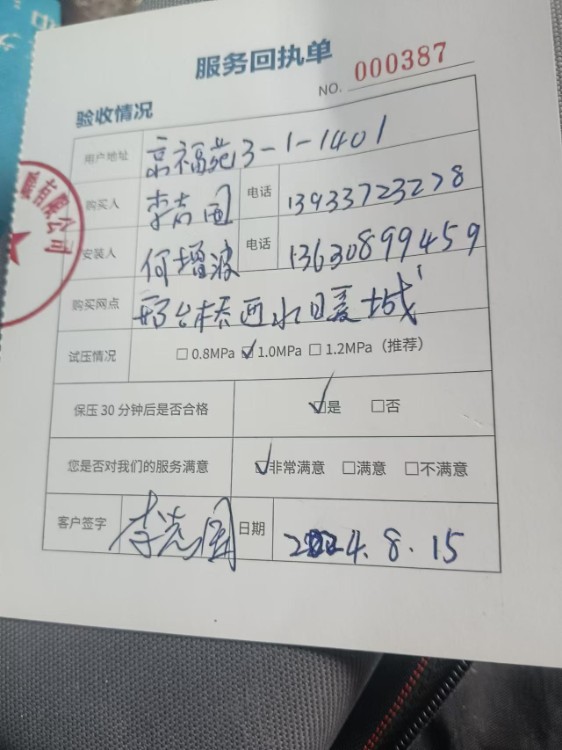 服务回执单
NO. 000387
验收情况
用户地址 京福苑13-1-1401
购买人 李志国 电话 13933723278
安装人 何增波 电话 13630899459
购买网点 邢台桥西水暖城
试压情况 □0.8MPa ☑1.0MPa □1.2MPa（推荐）
保压30分钟后是否合格 ☑是 □否
您是否对我们的服务满意 ☑非常满意 □满意 □不满意
客户签字 李志国 日期 2024.8.15
有限公司